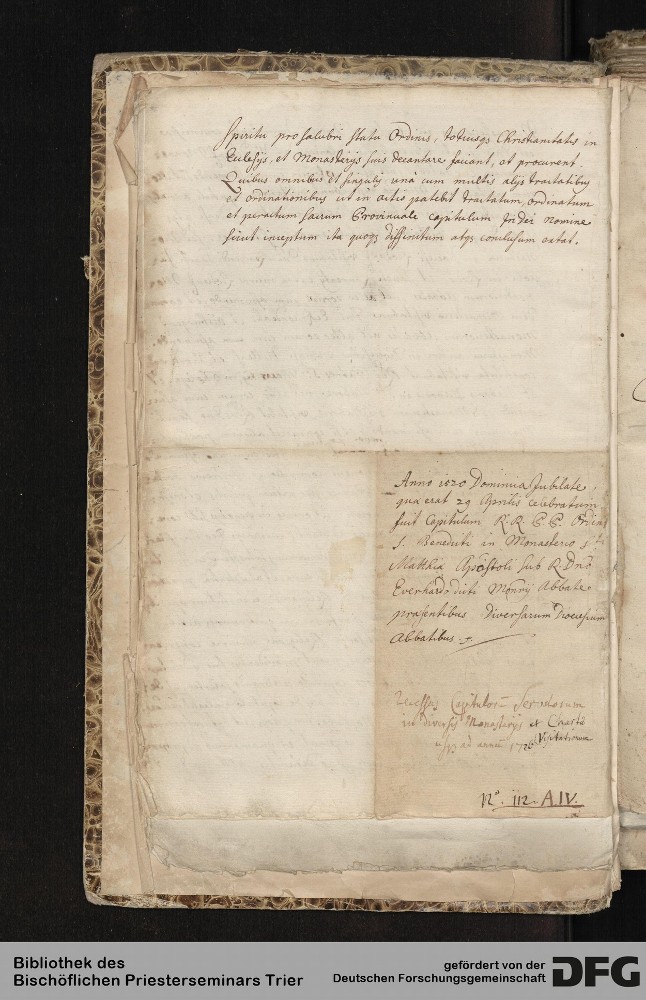 Spiritu pro salubri statu Ordinis, totiusq3 Christianitatis in
Eclesijs, et Monasterijs suis decantare faciant, et procurent.
Quibus omnibus et singulis unà cum multis alijs tractatibus
et ordinationibus ut in actis patebit tractatum, ordinatum
et peractum sacrum Provinciale Capitulum in dei nomine
sicut inceptum ita quoq3 diffinitum atq3 conclusum extat.
Anno 1520 Dominica Jubilate,
qua erat 29 Aprilis celebratum
fuit Capitulum R.R. P.P. Ordin
S. Benedicti in Monasterio S.
Matthiæ Apostoli sub R. Dno
Everhardo dicti Monrij Abbate
præsentibus diversarum Dioecesium
Abbatibus
Recessus Capitulor Servatorum
in diversis Monasterijs et Charta
usq ad annu 1726 Visitationum
No. 112. A.IV.
Bibliothek des
Bischöflichen Priesterseminars Trier
gefördert von der
Deutschen Forschungsgemeinschaft
DFG